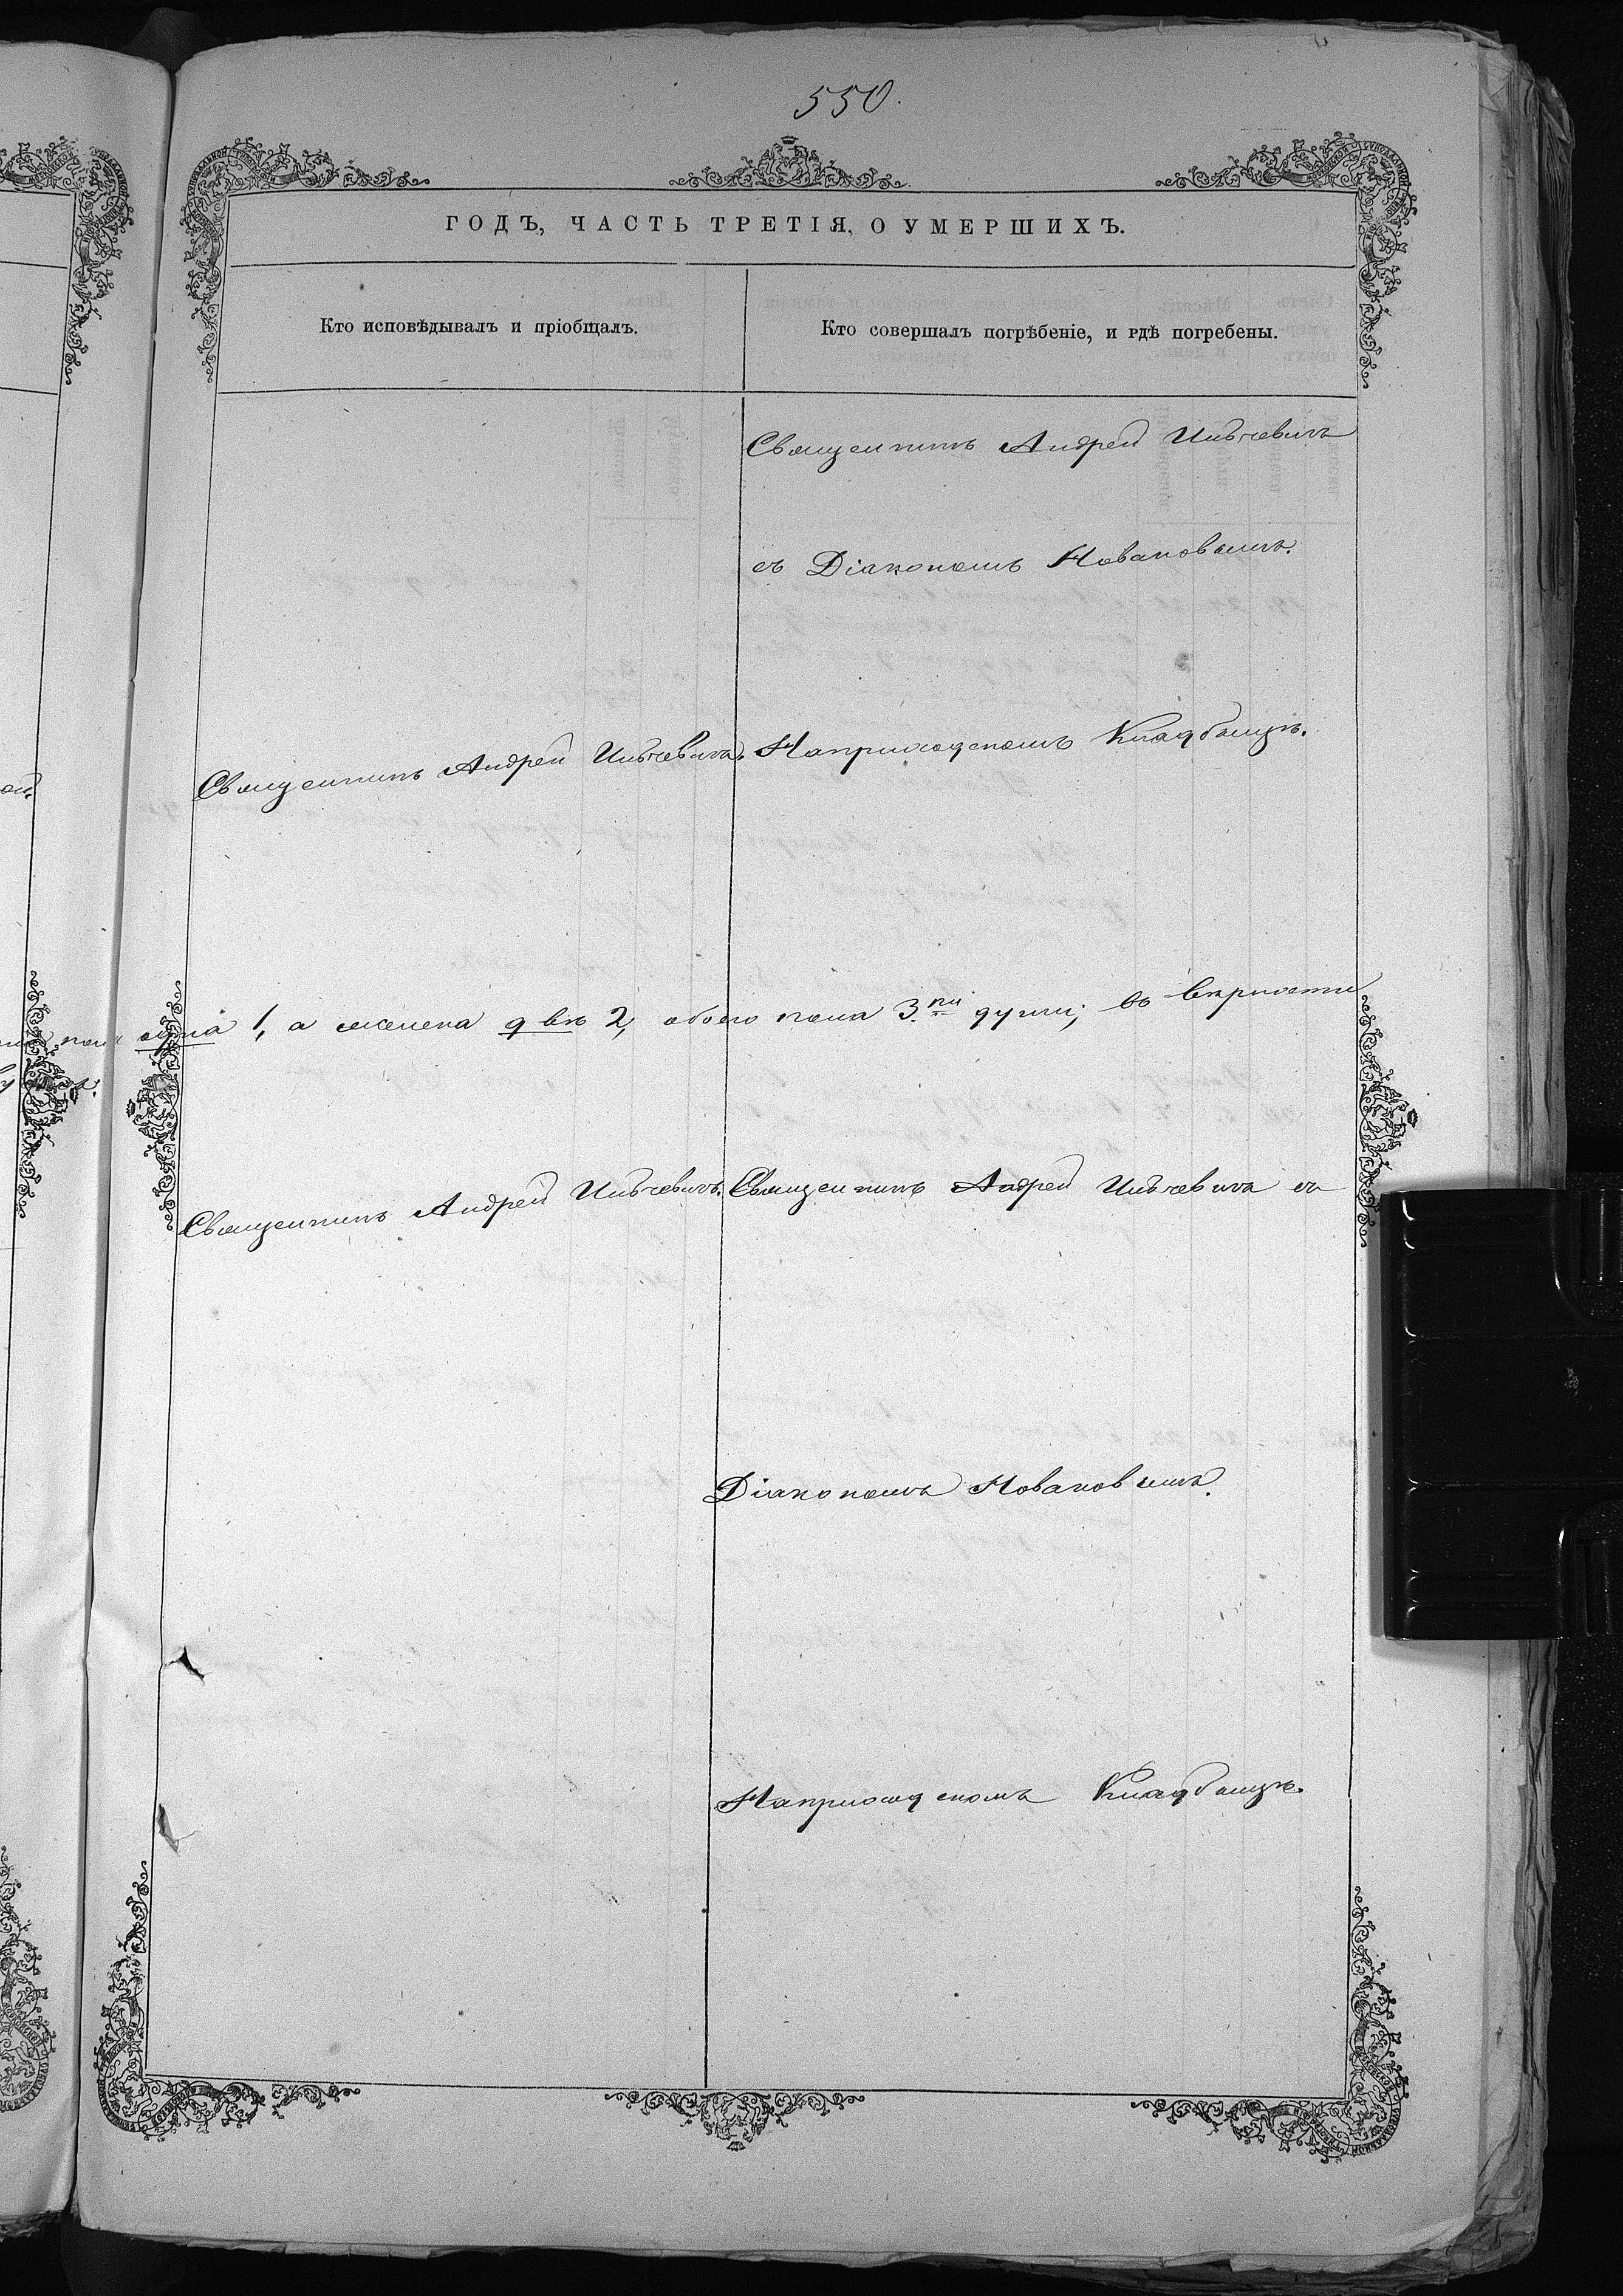 550.
ГОДЪ, ЧАСТЬ ТРЕТІЯ, О УМЕРШИХЪ.
Кто исповѣдывалъ и пріобщалъ.
Кто совершалъ погрѣбеніе, и гдѣ погребены.
Священникъ Андрей
съ Діакономъ Новаковымъ.
Священникъ Андрей
Наприходскомъ Кладбищѣ.
пола одна 1, а женска двѣ 2, обоего пола 3.ри души; въ вѣрности
Священникъ Андрей
Священникъ Андрей съ
Діакономъ Новаковымъ.
Наприходскомъ Кладбищѣ.